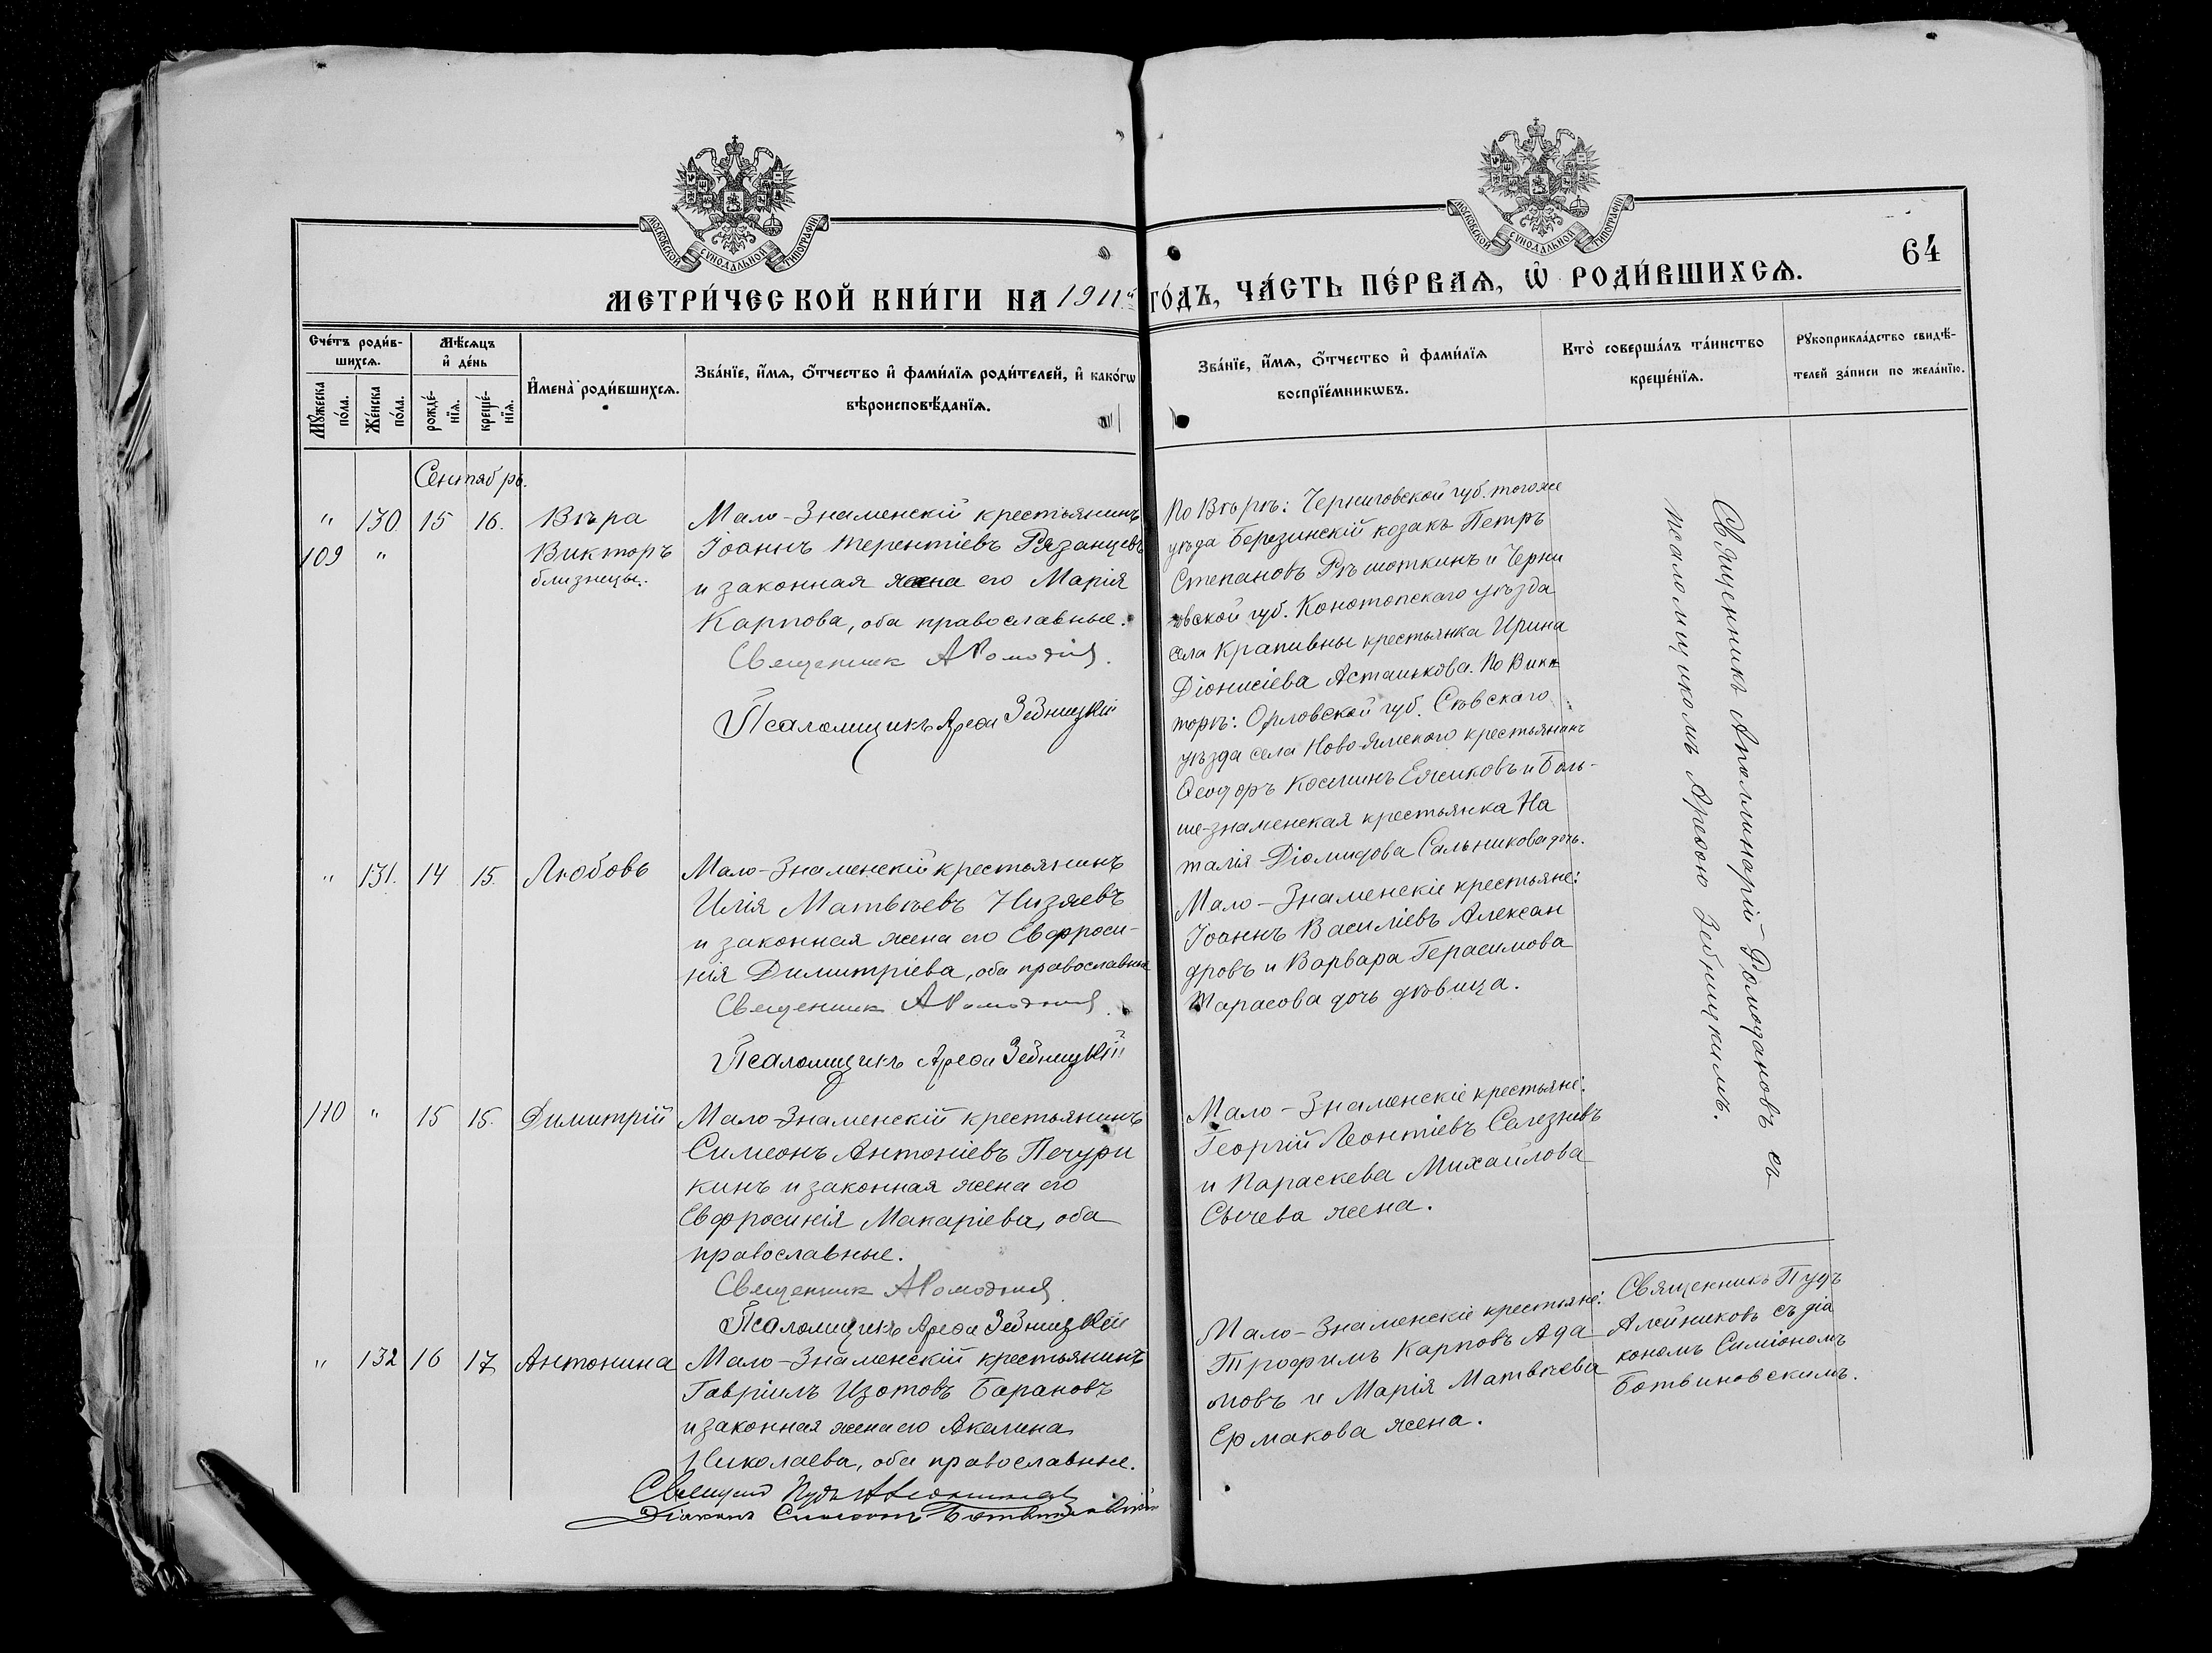 МОСКОВСКОЙ СѴНОДАЛЬНОЙ ТИПОГРАФІИ
МОСКОВСКОЙ СѴНОДАЛЬНОЙ ТИПОГРАФІИ
64
МЕТРИ́ЧЕСКОЙ КНИ́ГИ НА 1911й ГО́ДЪ, ЧА́СТЬ ПЕ́РВАѦ, Ѿ РОДИ́ВШИХСѦ.
Сче́тъ роди́в-
шихсѧ.
Мꙋ́жеска по́ла.
Же́нска по́ла.
Мѣ́сѧцъ
и҆ де́нь
рожде́-
нїѧ.
креще́-
нїѧ.
И҆мена̀ роди́вшихсѧ.
Зва́нїе, и҆́мѧ, ѻ҆́тчество и҆ фами́лїѧ роди́телей, и҆ како́гѡ
вѣроисповѣ́данїѧ.
Зва́нїе, и҆́мѧ, ѻ҆́тчество и҆ фами́лїѧ
воспрїе́мникѡвъ.
Кто̀ соверша́лъ та́инство
креще́нїѧ.
Рꙋкоприкла́дство свидѣ́-
телей за́писи по жела́нїю.
Сентябрь.
" 130 15 16. Вѣра
109 " Викторъ
близнецы.
Мало-Знаменскій крестьянинъ
Іоаннъ Терентіевъ Рязанцевъ
и законная жена его Марія
Карпова, оба православные.
Священник А Ромодано
Псаломщикъ Арефа Зебницкій
По Вѣрѣ: Черниговской губ. тогоже
уѣзда Березинскій козакъ Петръ
Степановъ Рѣшоткинъ и Черни
говской губ. Конотопскаго уѣзда
села Крапивны крестьянка Ирина
Діонисіева Асташкова. По Вик
торѣ: Орловской губ. Сѣвскаго
уѣзда села Ново-Ямскаго крестьянинъ
Ѳеодоръ Косминъ Ежиковъ и Боль-
ше-знаменская крестьянка На
талія Діомидова Сальникова дочь.
Священникъ Аполлинарій Ромодановъ съ
псаломщикомъ Арефою Зебницкимъ.
" 131. 14 15. Любовь
Мало-Знаменскій крестьянинъ
Илія Матвѣевъ Низяевъ
и законная жена его Евфроси-
нія Димитріева, оба православные
Священник А Ромодано
Псаломщикъ Арефа Зебницкій
Мало-Знаменскіе крестьяне:
Іоаннъ Василіевъ Алексан
дровъ и Варвара Герасимова
Тарасова дочь дѣвица.
110 " 15 15. Димитрій
Мало-Знаменскій крестьянинъ
Симеонъ Антоніевъ Печури
кинъ и законная жена его
Евфросинія Макаріева, оба
православные.
Священник А Ромодано
Псаломщикъ Арефа Зебницкій
Мало-Знаменскіе крестьяне:
Георгій Леонтіевъ Селезневъ
и Параскева Михаилова
Сычева жена.
" 132 16 17 Антонина
Мало-Знаменскій крестьянинъ
Гавріилъ Изотовъ Барановъ
и законная жена его Акелина
Николаева, оба православные.
Священ Пудъ Алейников
Діаконъ Симеонъ Ботвиновскій
Мало-Знаменскіе крестьяне:
Трофимъ Карповъ Ада
мовъ и Марія Матвѣева
Ермакова жена.
Священникъ Пудъ
Алейниковъ съ діа
кономъ Симіономъ
Ботвиновскимъ.